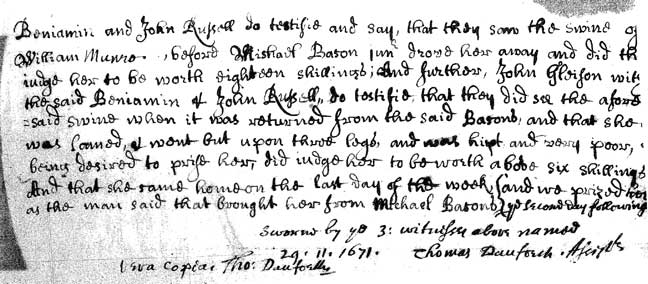 Beniamin and John Russell do testifie and say, that they saw the swine of
William Munro, before Mishael Bacon junr drove her away and did th
iudge her to be worth eighteen shillings; And further, John Gleison with
the said Beniamin & John Russell, do testifie, that they did see the afore
-said swine when it was returned from the said Bacons, and that she
was lamed, & went but upon three legs, and was hipt and very poor,
being desired to prise her, did iudge her to be worth above six shillings
And that she came home on the last day of the week, (and we prized her
as the man said that brought her from Michael Bacons) ye second day following
Sworne by ye 3: witnesses above named
29. 11. 1671. Thomas Danforth. Assist
Vera copia: Tho: Danforth